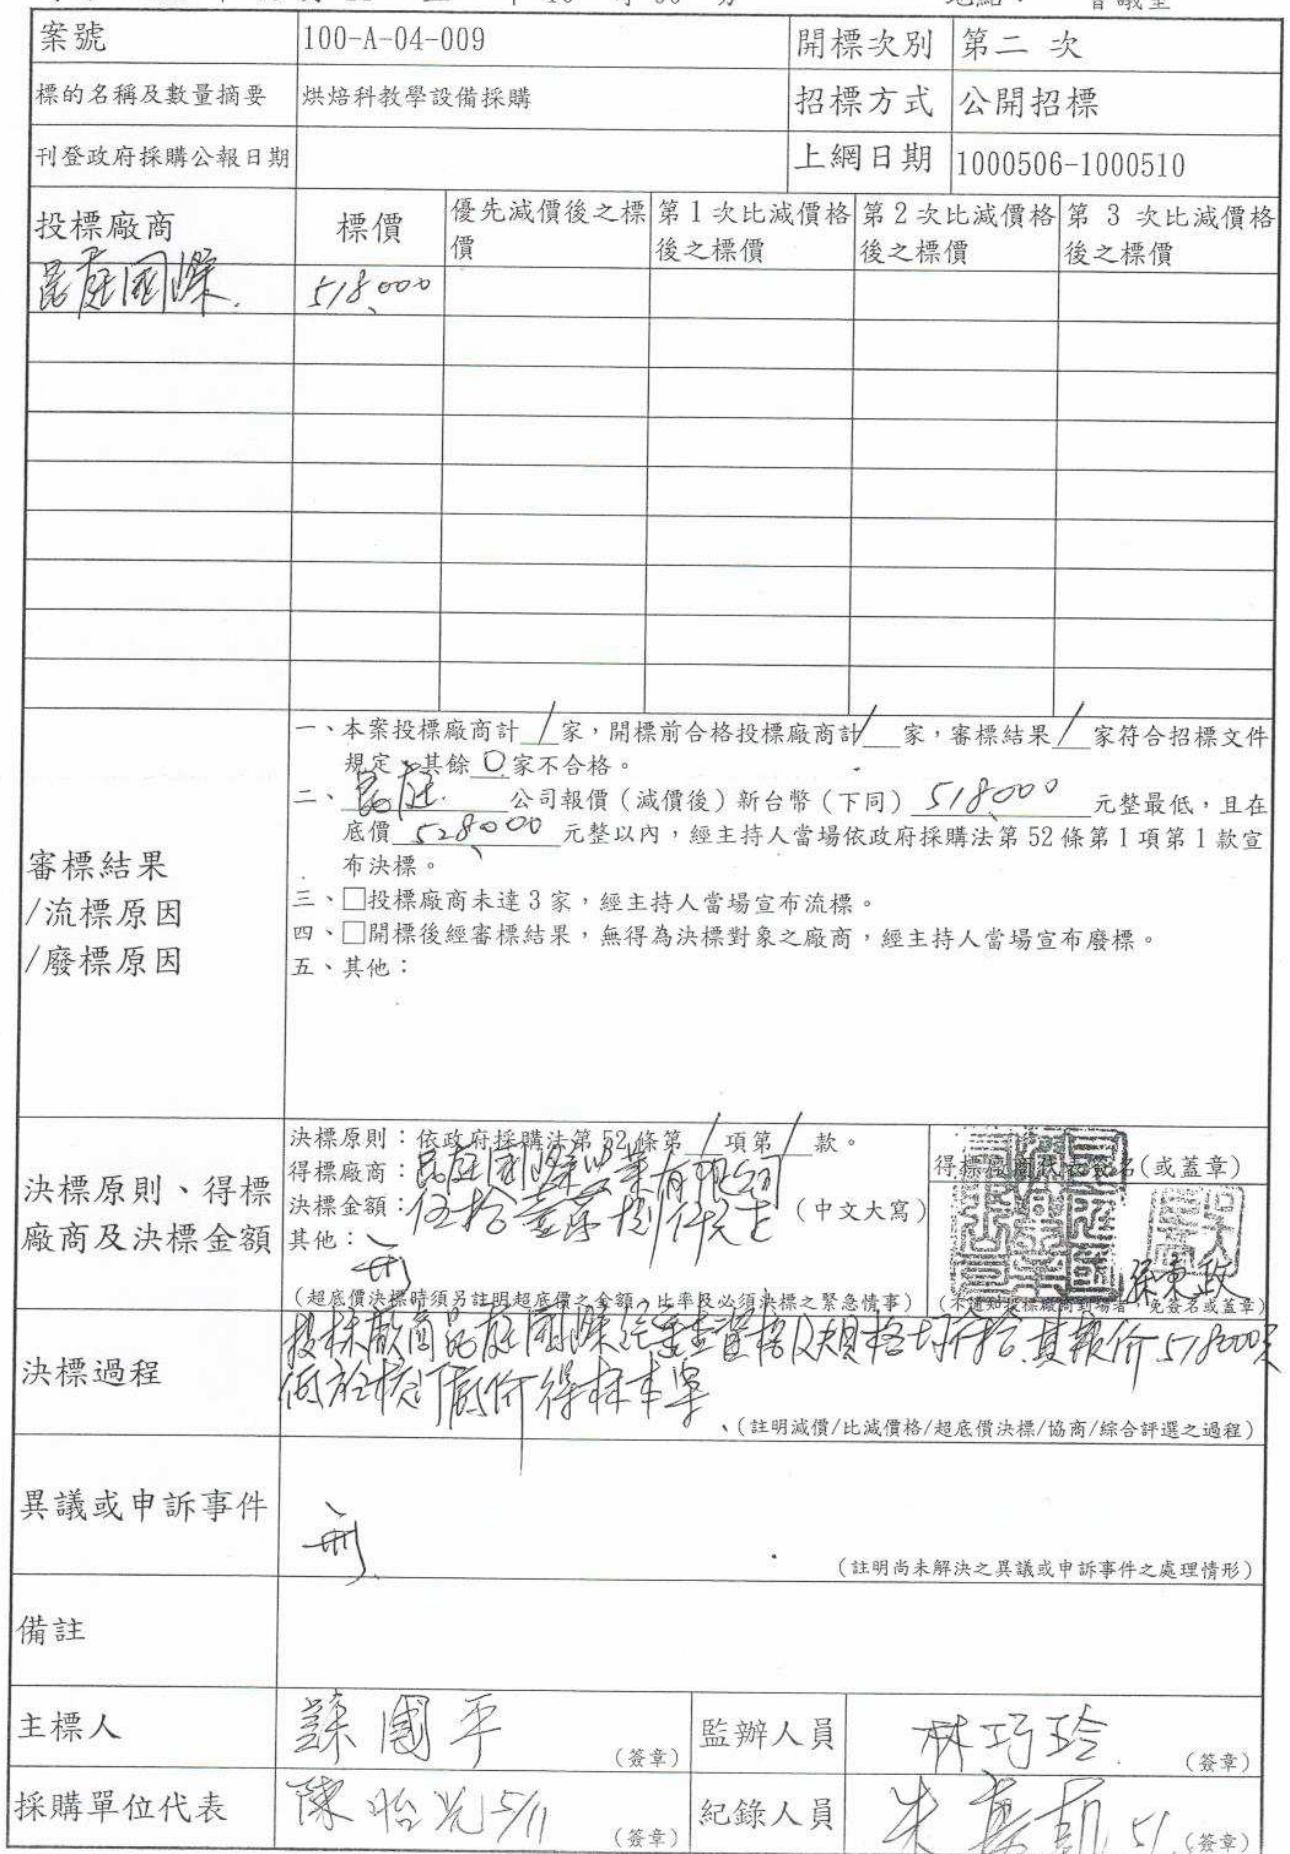 案號 100-A-04-009 開標次別 第二 次
標的名稱及數量摘要 烘焙科教學設備採購 招標方式 公開招標
刊登政府採購公報日期 上網日期 1000506-1000510
投標廠商 標價 優先減價後之標價 第1次比減價格後之標價 第2次比減價格後之標價 第 3 次比減價格後之標價
昆庭國際. 518,000
審標結果
/流標原因
/廢標原因
一、本案投標廠商計 / 家,開標前合格投標廠商計 / 家,審標結果 / 家符合招標文件
規定,其餘 0 家不合格。
二、昆庭. 公司報價(減價後)新台幣(下同) 518,000 元整最低,且在
底價 528,000 元整以內,經主持人當場依政府採購法第52條第1項第1款宣
布決標。
三、□投標廠商未達3家,經主持人當場宣布流標。
四、□開標後經審標結果,無得為決標對象之廠商,經主持人當場宣布廢標。
五、其他:
決標原則、得標
廠商及決標金額
決標原則:依政府採購法第52條第 / 項第 / 款。
得標廠商:昆庭國際興業有限公司
決標金額:伍拾壹萬捌仟元正 (中文大寫)
其他:無
(超底價決標時須另註明超底價之金額、比率及必須決標之緊急情事)
得標廠商代表簽名(或蓋章)
(不通知投標廠商到場者,免簽名或蓋章)
決標過程
投标廠商昆庭國際經審查資格及規格均符合.其報价518000元
低於核定底价得标本案
、(註明減價/比減價格/超底價決標/協商/綜合評選之過程)
異議或申訴事件 無.
(註明尚未解決之異議或申訴事件之處理情形)
備註
主標人 國平 (簽章) 監辦人員 林巧玲. (簽章)
採購單位代表 陳怡 5/11 (簽章) 紀錄人員 朱 (簽章)